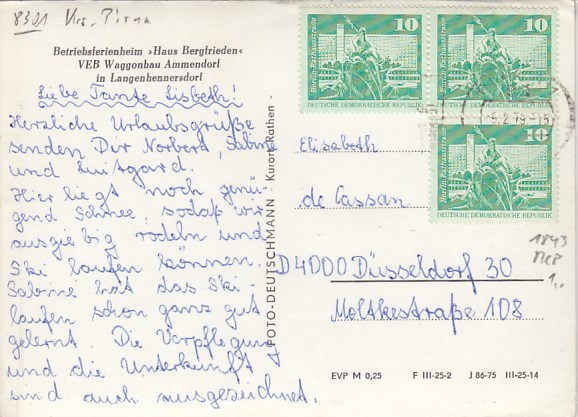 8321 Krs. Pirna
Betriebsferienheim »Haus Bergfrieden«
VEB Waggonbau Ammendorf
in Langenhennersdorf
Liebe Tante Lisbeth!
Herzliche Urlaubsgrüße
senden Dir Norbert, Sabine
und Luitgard.
Hier liegt noch genü-
gend Schnee, sodaß wir
ausgiebig rodeln und
Ski laufen können.
Sabine hat das Ski-
laufen schon ganz gut
gelernt. Die Verpflegung
und die Unterkunft
sind auch ausgezeichnet.
FOTO-DEUTSCHMANN Kurort Rathen
Berlin Rathausstraße 10
DEUTSCHE DEMOKRATISCHE REPUBLIK
Berlin Rathausstraße 10
DEUTSCHE DEMOKRATISCHE REPUBLIK
Berlin Rathausstraße 10
DEUTSCHE DEMOKRATISCHE REPUBLIK
5.2.79-15
Elisabeth
de Cassan
D4000 Düsseldorf 30
Moltkestraße 108
1843
1,-
EVP M 0,25 F III-25-2 J 86-75 III-25-14